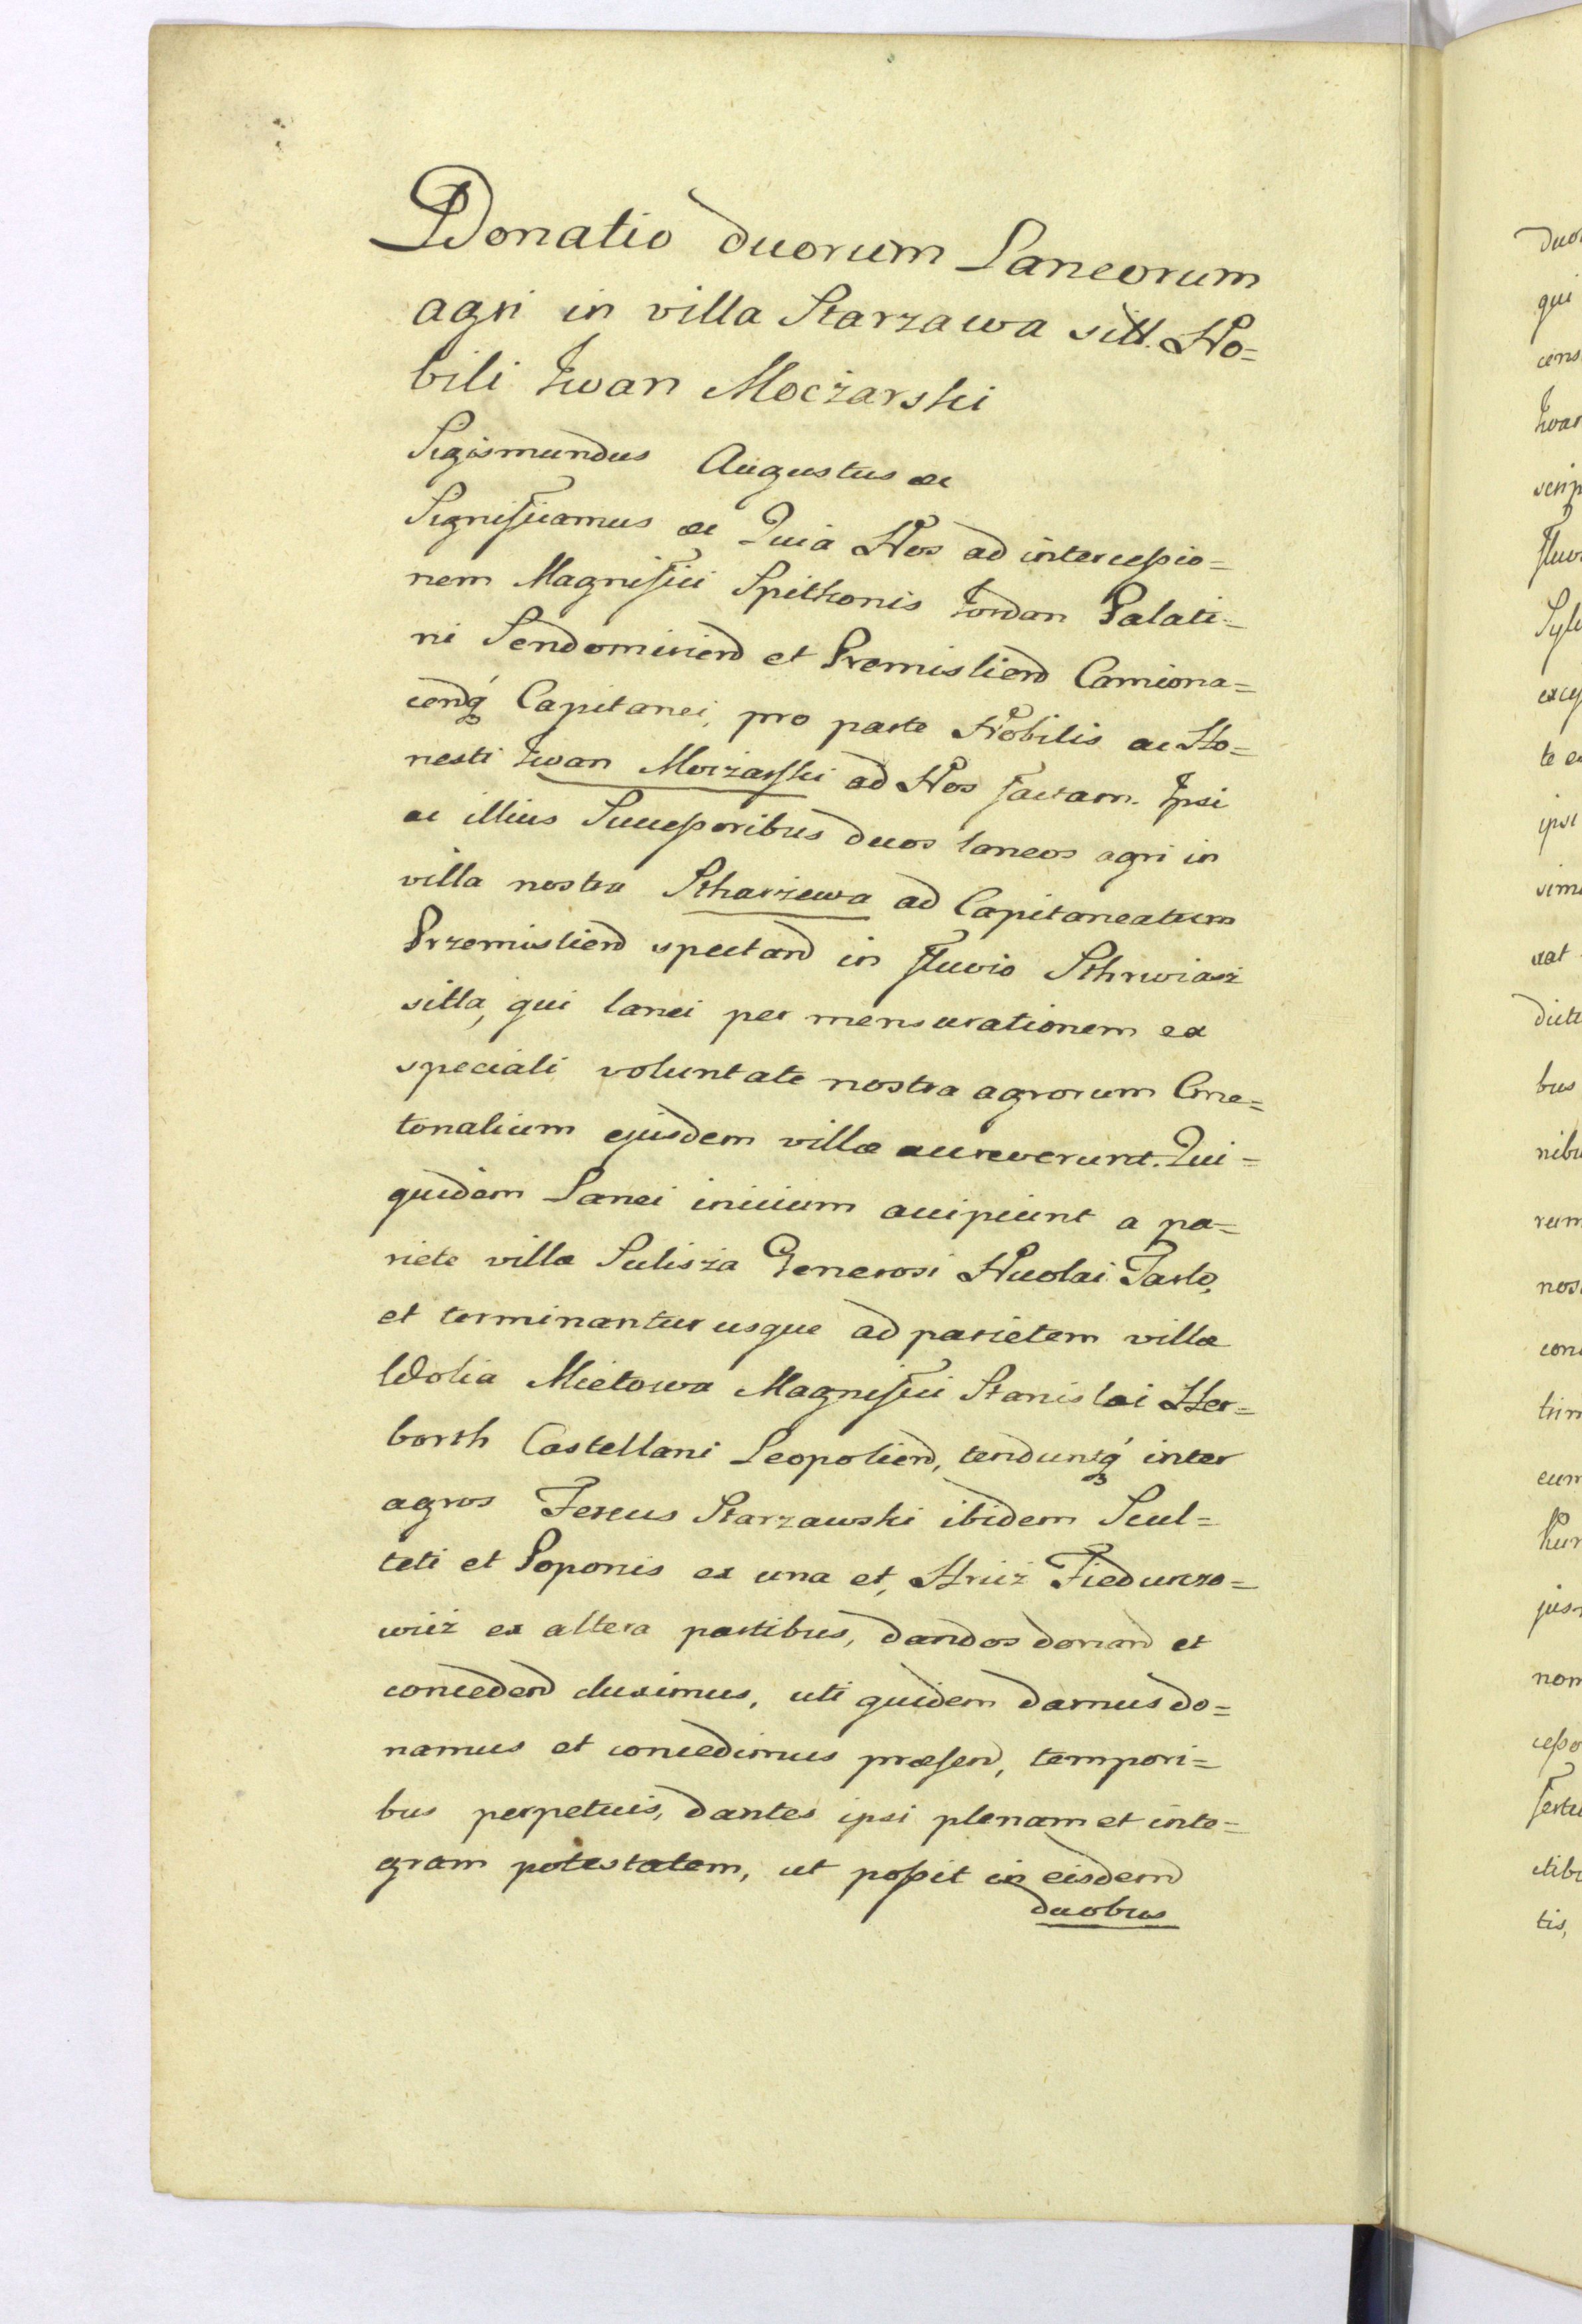 Donatio duorum Laneorum
agri in villa Starzawa sitt. No=
bili Iwan Moczarski
Sigismundus Augustus ec
Significamus ec Quia Nos ad intercessio=
nem Magnifici Spitkonis Iordan Palati=
ni Sendomirien et Premislien Camiona=
cenq Capitanei, pro parte Nobilis ac Ho=
nesti Iwan Moczarski ad Nos factam. Ipsi
ac illius Successoribus duos laneos agri in
villa nostra Stharzewa ad Capitaneatum
Przemislien spectan in fluvio Sthrwiasz
sitta, qui lanei per mensurationem ex
speciali voluntate nostra agrorum Cme=
tonalium ejusdem villæ accreverunt. Qui=
quidem Lanei inicium accipiunt a pa=
riete villæ Sulisza Generosi Nicolai Tarlo,
et terminantur usque ad parietem villæ
Wolia Mietowa Magnifici Stanislai Her=
borth Castellani Leopolien, tenduntq inter
agros Fercus Starzawski ibidem Scul=
teti et Poponis ex una et, Hricz Fiedurczo=
wicz ex altera partibus, dandos donan et
conceden duximus, uti quidem damus do=
namus et concedimus præsen, tempori=
bus perpetuis, dantes ipsi plenam et inte=
gram potestatem, ut possit in eisdem
duobus